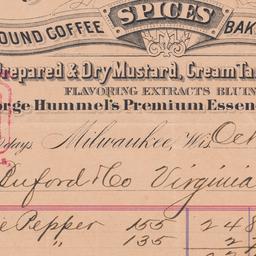 SPICES
OUND COFFEE BAK
Prepared & Dry Mustard, Cream Ta
FLAVORING EXTRACTS BLUIN
orge Hummel's Premium Essen
days Milwaukee, Wis Oct
Buford & Co Virginia
e Pepper 155 2 4 8
" 135 2